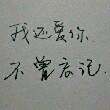 我还爱你
不曾忘记.